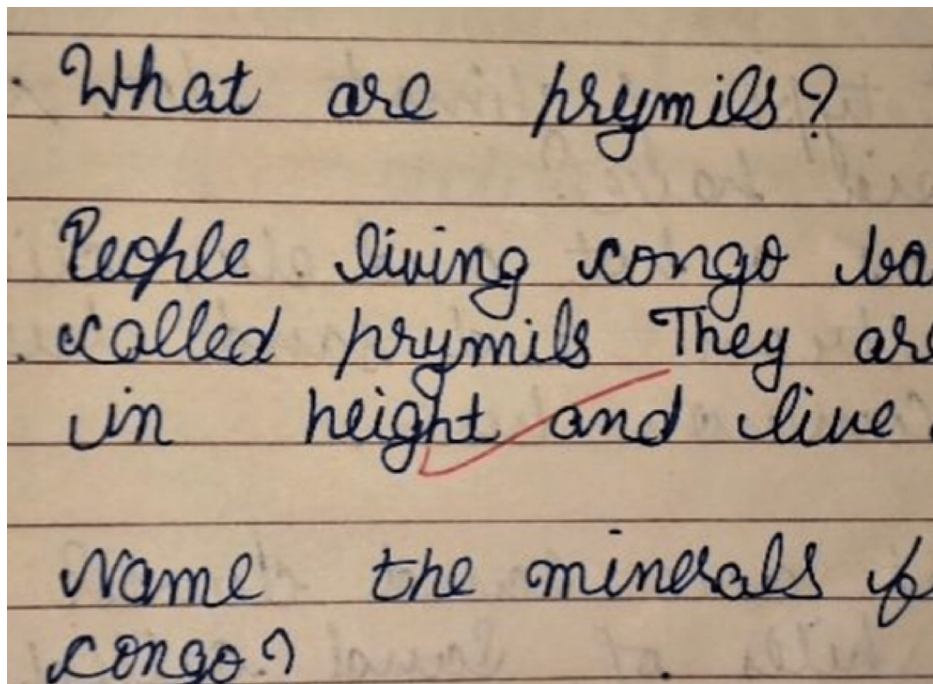 What are prymils?
People living congo ba
called prymils They are
in height and live
Name the minerals f
congo?